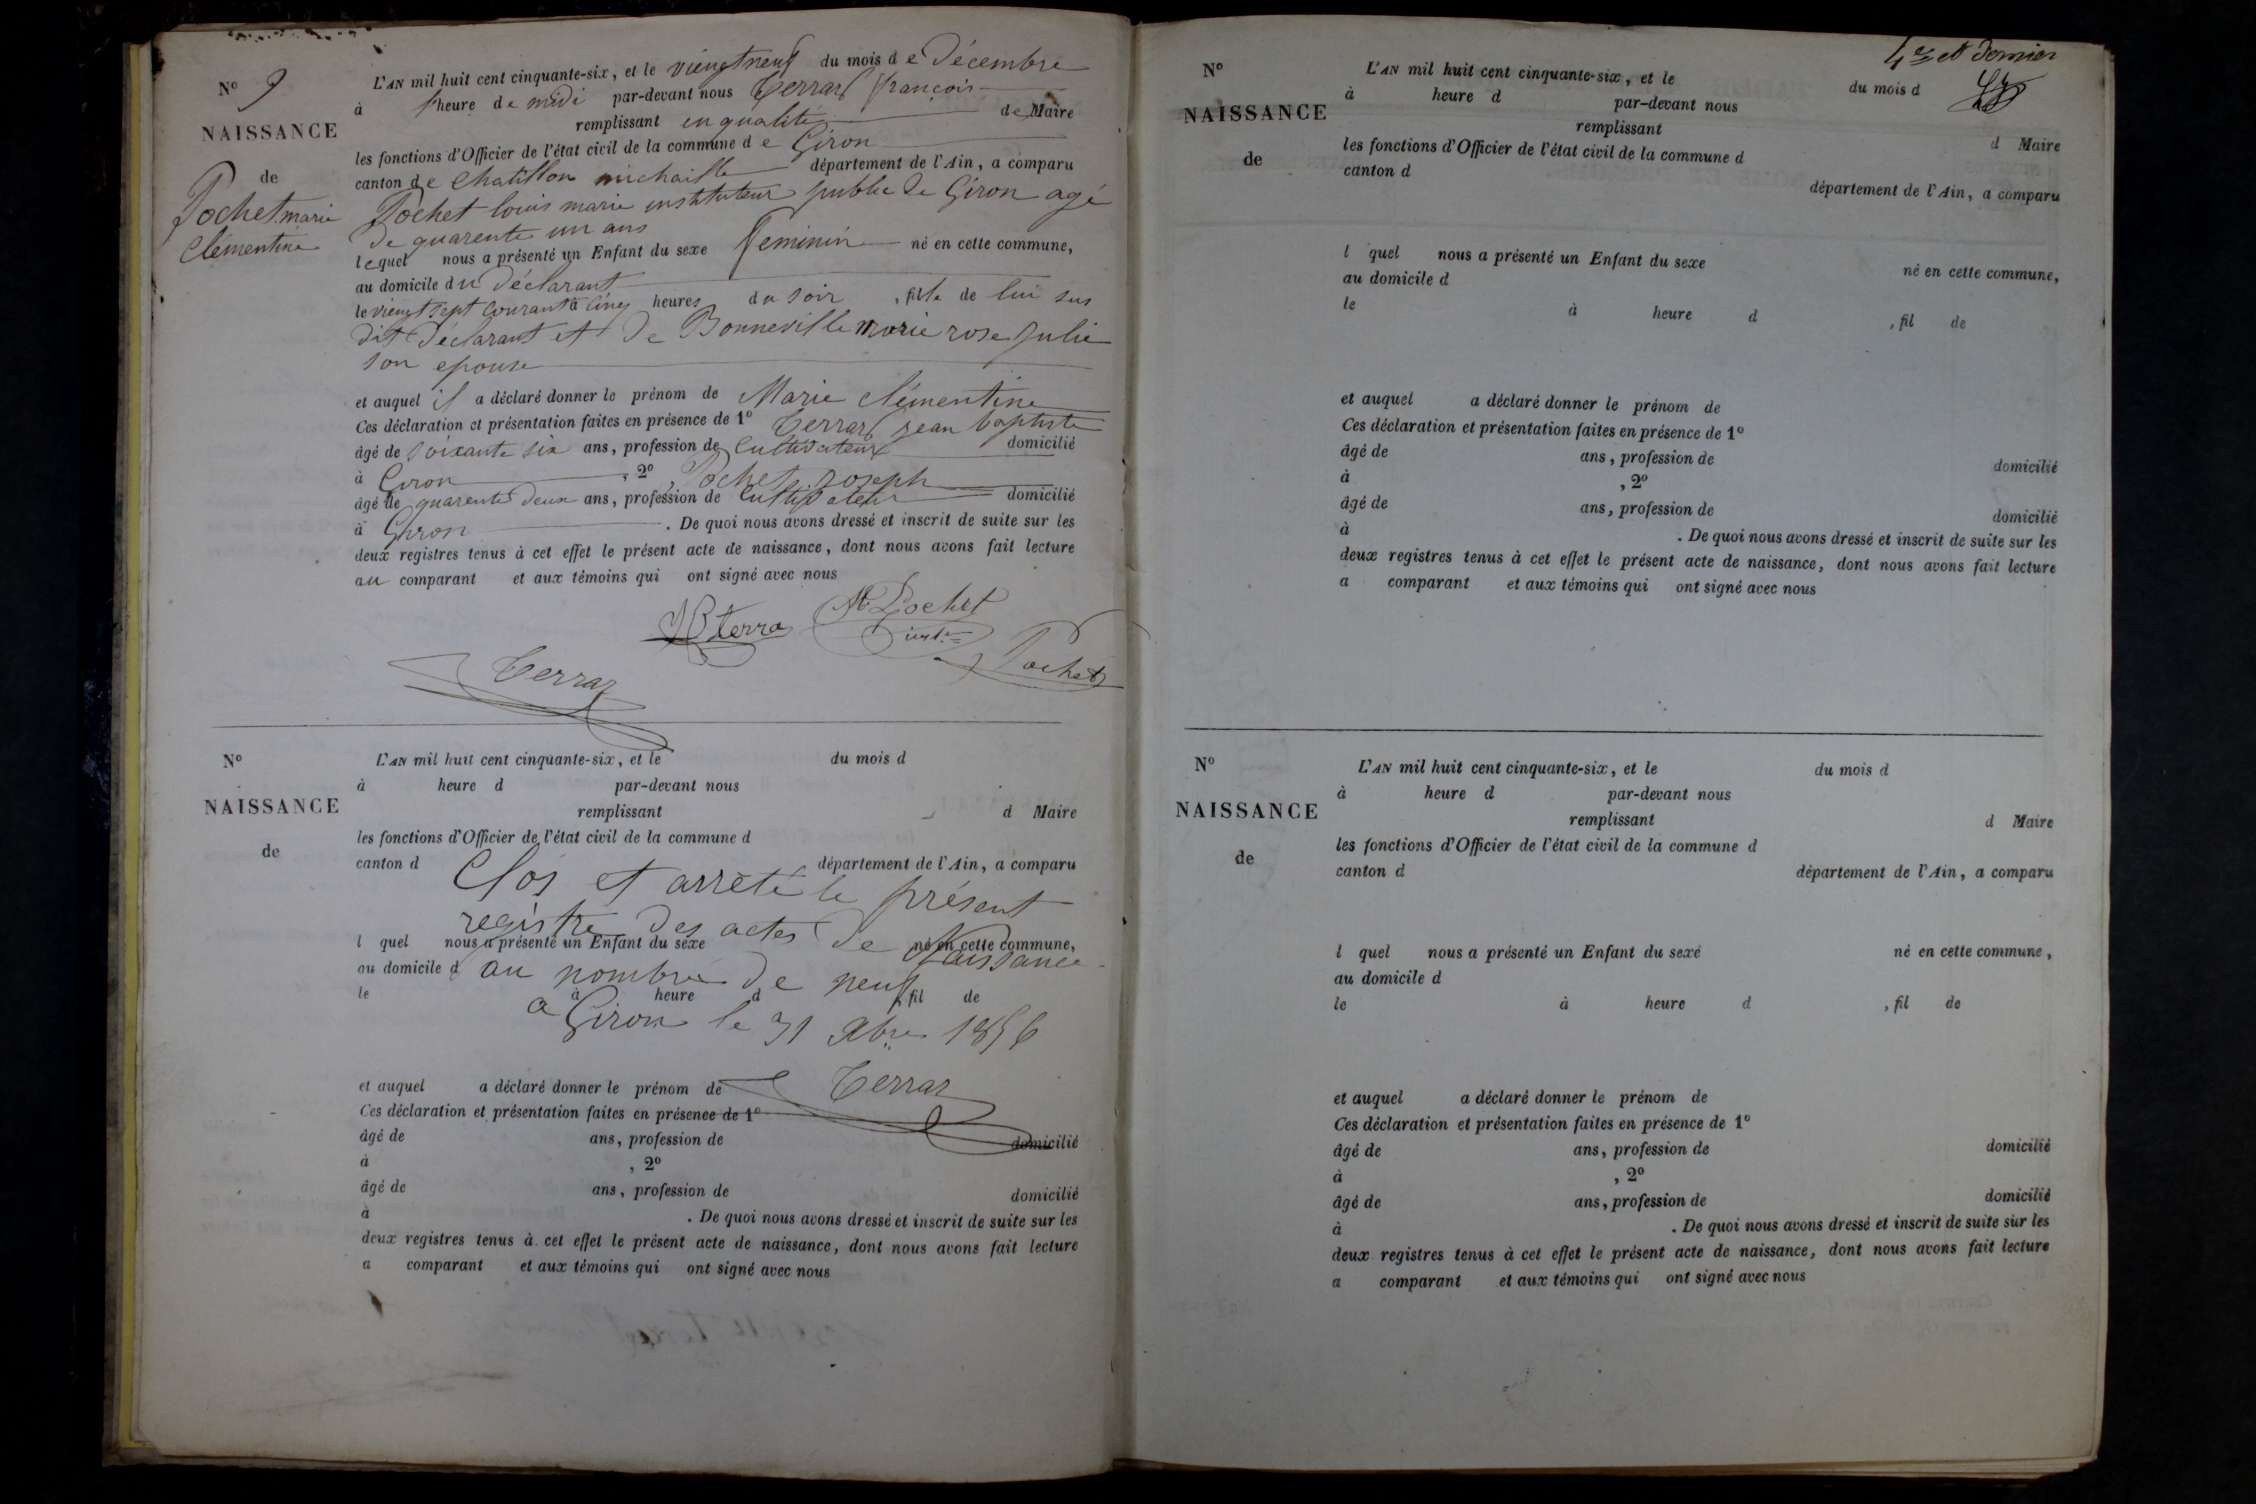 No 9
NAISSANCE
de
Pochet marie
Clémentine
L'AN mil huit cent cinquante-six, et le viengt neuf du mois de Décembre
à heure de midi par-devant nous Terraz françois
remplissant en qualité de Maire
les fonctions d'Officier de l'état civil de la commune de Giron
canton de Chatillon michaille département de l'Ain, a comparu
Pochet louis marie instituteur public de Giron agé
de quarente un ans
lequel nous a présenté un Enfant du sexe feminin né en cette commune,
au domicile du déclarant
le viengt sept courant à cinq heures du soir, fille de lui sus
dit déclarant et de Bonneville marie rose Julie
son epouse
et auquel il a déclaré donner le prénom de Marie clémentine
Ces déclaration et présentation faites en présence de 1o Terraz jean baptiste
âgé de soixante six ans, profession de Cultivateur domicilié
à Giron, 2o Pochet joseph
âgé de quarente deux ans, profession de Cultivateur domicilié
à Giron. De quoi nous avons dressé et inscrit de suite sur les
deux registres tenus à cet effet le présent acte de naissance, dont nous avons fait lecture
au comparant et aux témoins qui ont signé avec nous
JB terra Pochet
Pochet
Terraz
No
NAISSANCE
de
L'AN mil huit cent cinquante-six, et le du mois d
à heure d par-devant nous
remplissant d Maire
les fonctions d'Officier de l'état civil de la commune d
canton d département de l'Ain, a comparu
Clos et arrêté le présent
registre des actes de Naissance
l quel nous a présenté un Enfant du sexe né en cette commune,
au domicile d au nombre de neuf
le à heure d, fil de
a Giron le 31 xbre 1856
Terraz
et auquel a déclaré donner le prénom de
Ces déclaration et présentation faites en présence de 1o
âgé de ans, profession de domicilié
à, 2o
âgé de ans, profession de domicilié
à. De quoi nous avons dressé et inscrit de suite sur les
deux registres tenus à cet effet le présent acte de naissance, dont nous avons fait lecture
a comparant et aux témoins qui ont signé avec nous
4e et dernier
No
NAISSANCE
de
L'AN mil huit cent cinquante-six, et le du mois d
à heure d par-devant nous
remplissant d Maire
les fonctions d'Officier de l'état civil de la commune d
canton d département de l'Ain, a comparu
l quel nous a présenté un Enfant du sexe né en cette commune,
au domicile d
le à heure d, fil de
et auquel a déclaré donner le prénom de
Ces déclaration et présentation faites en présence de 1o
âgé de ans, profession de domicilié
à, 2o
âgé de ans, profession de domicilié
à. De quoi nous avons dressé et inscrit de suite sur les
deux registres tenus à cet effet le présent acte de naissance, dont nous avons fait lecture
a comparant et aux témoins qui ont signé avec nous
No
NAISSANCE
de
L'AN mil huit cent cinquante-six, et le du mois d
à heure d par-devant nous
remplissant d Maire
les fonctions d'Officier de l'état civil de la commune d
canton d département de l'Ain, a comparu
l quel nous a présenté un Enfant du sexe né en cette commune,
au domicile d
le à heure d, fil de
et auquel a déclaré donner le prénom de
Ces déclaration et présentation faites en présence de 1o
âgé de ans, profession de domicilié
à, 2o
âgé de ans, profession de domicilié
à. De quoi nous avons dressé et inscrit de suite sur les
deux registres tenus à cet effet le présent acte de naissance, dont nous avons fait lecture
a comparant et aux témoins qui ont signé avec nous